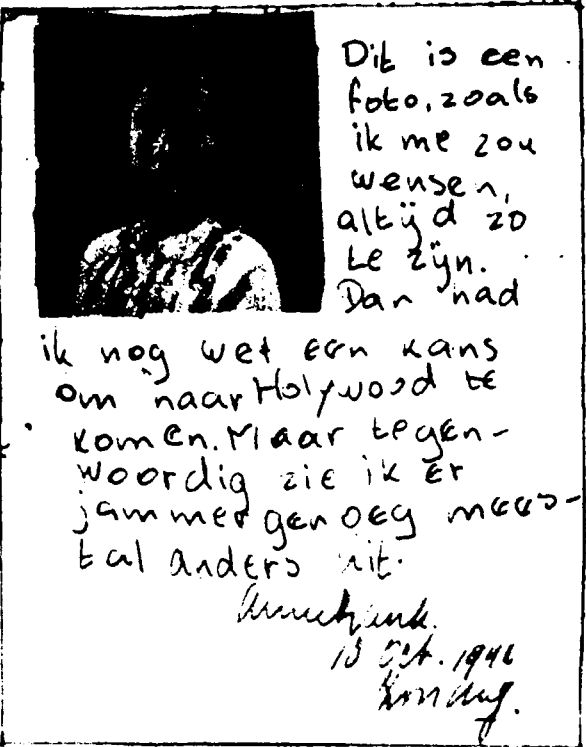 Dit is een
foto, zoals
ik me zou
wensen,
altijd zo
te zijn.
Dan had
ik nog wel een kans
om naar Holywood te
komen. Maar tegen-
woordig zie ik er
jammer genoeg mees-
tal anders uit.
Annefrank.
Oct. 1942
Zondag.